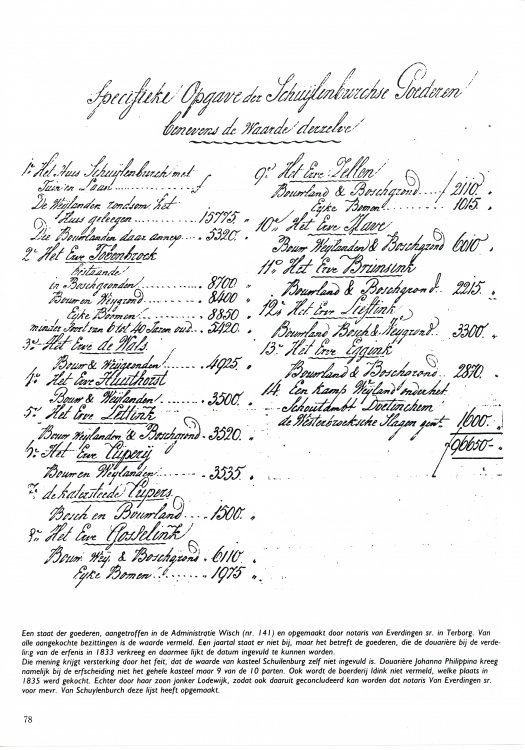 Specifieke Opgave der Schuijlenburchse Goederen
benevens de Waarde derzelve
1º Het Huis Schuijlenburch met
Tuin en Laan ........... ƒ
De Weylanden rondsom het
Huis geleegen ..... 15775. "
Die Bouwlanden daar annex ... 5320. "
2º Het Erve Tobenbrock
bestaande
in Boschgronden ..... 8700 "
Bouw en Weygrond ..... 8400 "
Eyke Bomen ..... 8850 "
minder soort van 6 tot 40 Jaren oud ... 5420. "
3º Het Erve de Wals
Bouw & Weijgronden ..... 4925. "
4º Het Erve Fluithorst
Bouw & Weylanden ..... 3500. "
5º Het Erve Lettink
Bouw Weijlanden & Boschgrond . 3320. "
Het Erve Cuperij
Bouw en Weylanden ..... 3535. "
7º de katersteede Cupers
Bosch en Bouwland ..... 1500. "
8º Het Erve Gosselink
Bouw. Weij. & Boschgrond . 6110. "
Eyke Bomen ..... 1975 "
9º Het Erve Zellen
Bouwland & Boschgrond ... 2110. "
Eyke Bomen ..... 1015. "
10º Het Erve
Bouw Weylanden & Boschgrond 6010 "
11º Het Erve Brunsink
Bouwland & Boschgrond . 2215. "
12º Het Erve Luftink
Bouwland Bosch & Weygrond . 3300. "
13º Het Erve Eggink
Bouwland & Boschgrond ... 2870. "
14. Een kamp Weyland onder het
Schoutambt Doetinchem
de Slagen gent. 1600. "
ƒ 96650.- "
Een staat der goederen, aangetroffen in de Administratie Wisch (nr. 141) en opgemaakt door notaris van Everdingen sr. in Terborg. Van
alle aangekochte bezittingen is de waarde vermeld. Een jaartal staat er niet bij, maar het betreft de goederen, die de douairière bij de verde-
ling van de erfenis in 1833 verkreeg en daarmee lijkt de datum ingevuld te kunnen worden.
Die mening krijgt versterking door het feit, dat de waarde van kasteel Schuilenburg zelf niet ingevuld is. Douairière Johanna Philippina kreeg
namelijk bij de erfscheiding niet het gehele kasteel maar 9 van de 10 parten. Ook wordt de boerderij Idink niet vermeld, welke plaats in
1835 werd gekocht. Echter door haar zoon jonker Lodewijk, zodat ook daaruit geconcludeerd kan worden dat notaris Van Everdingen sr.
voor mevr. Van Schuylenburch deze lijst heeft opgemaakt.
78